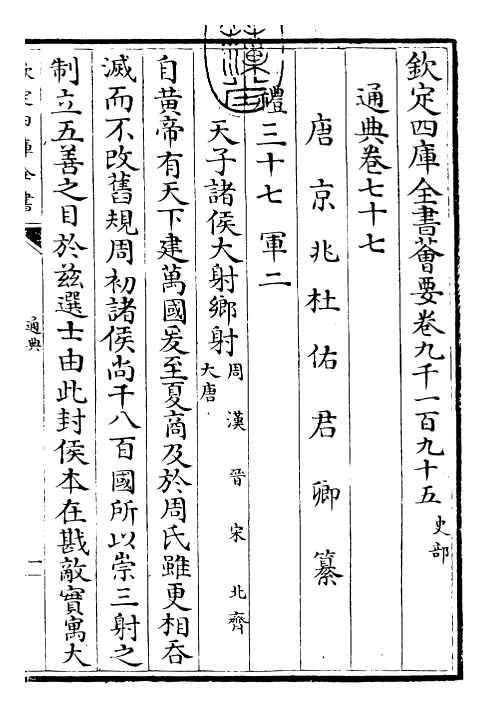 欽定四庫全書薈要卷九千一百九十五 史部
通典卷七十七
唐京兆杜佑君卿纂
禮三十七 軍二
天子諸侯大射鄉射 周 漢 晉 宋 北齊
大唐
自黃帝有天下建萬國爰至夏商及於周氏雖更相吞
滅而不改舊規周初諸侯尚千八百國所以崇三射之
制立五善之目於兹選士由此封侯本在戡敵實寓大
欽定四庫全書
通典
一